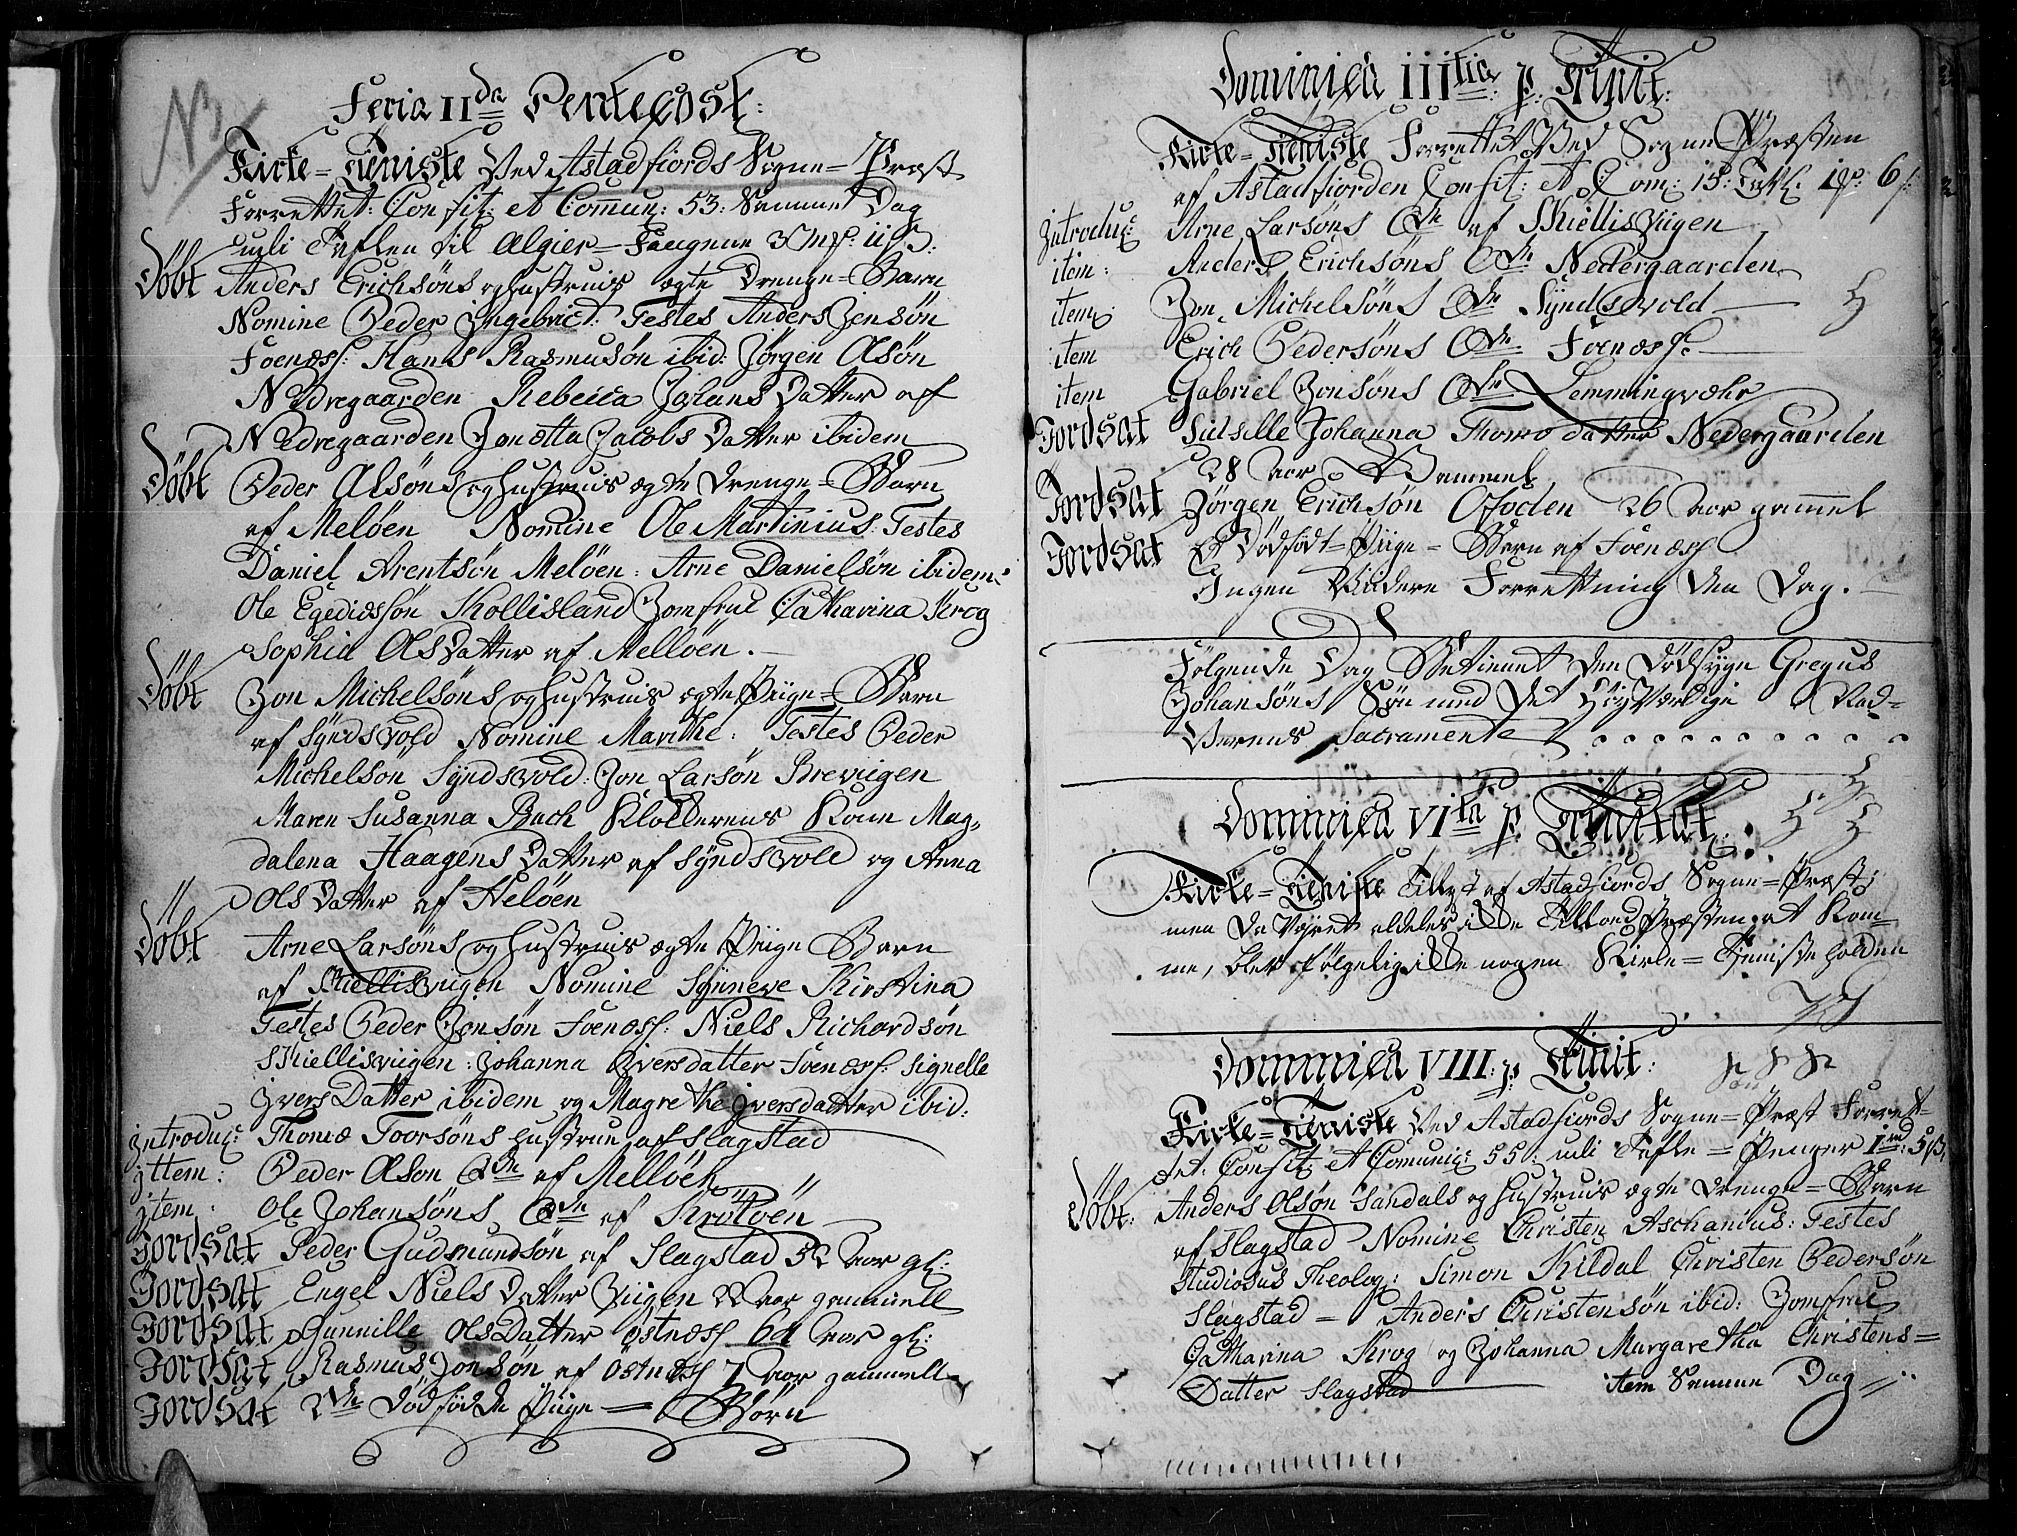 NB
Feria IIda Pentecost:
Kirke-Tieniste Ved Astadfiords Sogne-Præst
Forrettet: Confit: et Commun: 53: Samme Dag
Teflen til Algier-Fangerne 3
Døbt Anders Erichsøns og hustrues ægte Drenge-Barn
Nomine Peder Ingebrict: Testes Anders Jensøn
Foenæss: Hans Rasmusøn ibid: Jørgen Olsøn
Nedregaarden Rebecca Johans Datter af
Nedregaarden Jonetta Jacobs Datter ibidem
Døbt Peder Olsøns og hustrues ægte Drenge-Barn
af Meløen Nomine Ole Martinius: Testes
Daniel Arentsøn Meløen: Arne Danielsøn ibidem:
Ole Egediussøn Kollisland Jomfrue Catharina Krog
Sophia Ols Datter af Melløen.
Døbt Jon Michelsøns og hustrues ægte Piige-Barn
af Syndsvold Nomine Marithe: Testes Peder
Michelsøn Syndsvold: Jon Larsøn Breviigen
Maren Susanna Bech Klockerens Kone Mag-
dalena Haagens Datter af Syndsvold og Anna
Ols Datter af Meløen
Døbt Arne Larsøns og hustrues ægte Piige Barn
af Skiellisviigen Nomine Synneve Kirstina
Testes Peder Jonsøn Foenæss: Niels Richardsøn
Skiellisviigen: Johanna Iversdatter Foenæss: Signelle
Ivers Datter ibidem og Magrethe Iversdatter ibid:
Introduc: Thomæ Toorsøns hustrue af Slagstad
Ittem: Peder Olson Qde af Melløen
Item: Ole Johansøns Qde af Krøtøen
Jordsat Peder Gudmundsøn af Slagstad 52 Aar gl:
Jordsat Engel Niels Datter Viigen 22 Aar gammell
Jordsat Gunnille Ols Datter Østnæss 64 Aar gl:
Jordsat Rasmus Jonsøn af Østnæss 7 Aar gammell
Jordsat 2de Dødfødde Piige-Børn
Dominica IIItia p: Trinit:
Kirke-Tieniste Forrettet Ved Sogne Præsten
af Astadfiorden Confit: et Com: 15: 6
Introduc: Arne Larsøns Qde af Skiellisviigen
item: Anders Erichsøns Qde Nedergaarden
item Jon Michelsøns Qde Syndsvold
item Erich Pedersøns Qde Foenæss:
item Gabriel Jonsøns Qde Lemmingvæhr
Jordsat Sidselle Johanna Thomædatter Nedergaarden
28 Aar Gammel
Jordsat Jørgen Erichsøn Ofoden 26 Aar gammel
Jordsat Et Dødfødt-Piige-Barn af Foenæss
Ingen Videre Forrettning den Dag.
Følgende Dag Betient den Dødsyge Gregus
Johansøns Søn med det Høyværdige Nad-
Verens Sacramente
Dominica VIta p. Trinitat:
Kirke-Tieniste Tillyst af Astadfiords Sogne-Præst;
men da Vejret aldeles ikke Tillood Præsten at Kom-
me, blev følgelig ikke nogen Kirke-Tieniste holden
Dominica VIII: p: Trinit:
Kirke-Tieniste Ved Astadfiords Sogne-Præst Forret-
tet: Confit: et Comunic: 55: Tefle-Penger
Døbt: Anders Olsøn Sandals og hustrues ægte Drenge-Barn
af Slagstad Nomine Christen Aschanius: Testes
Studiosus Theolog: Simon Kildal Christen Pedersøn
Slagstad - Anders Christensøn ibid: Jomfrue
Catharina Krog og Johanna Margaretha Christens-
Datter Slagstad item Samme Dag